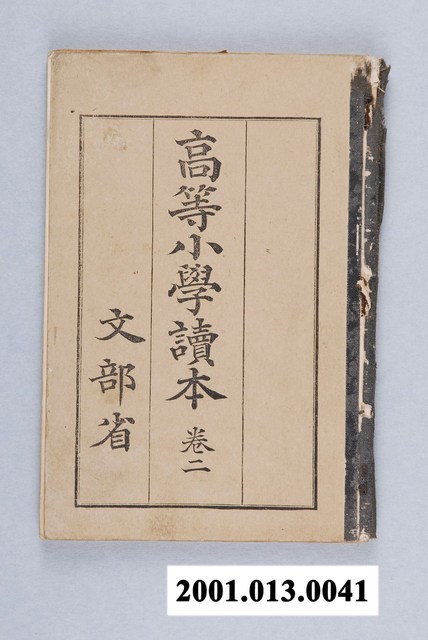 高等小學讀本 卷二
文部省
2001.013.0041